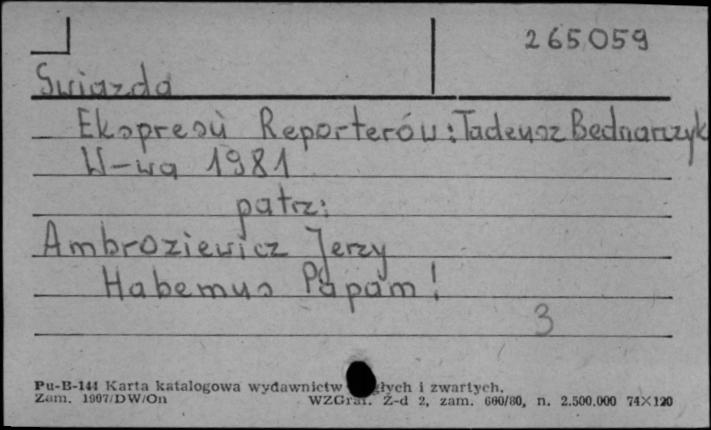 265059
Gwiazda
Ekspresu Reporterów: Tadeusz Bednarczyk
W-wa 1981
patrz:
Ambroziewicz Jerzy
Habemus Papam!
3
Pu-B-144 Karta katalogowa wydawnictw ciągłych i zwartych.
Zam. 1907/DW/On WZGraf. Z-d 2, zam. 600/80, n. 2.500.000 74×120